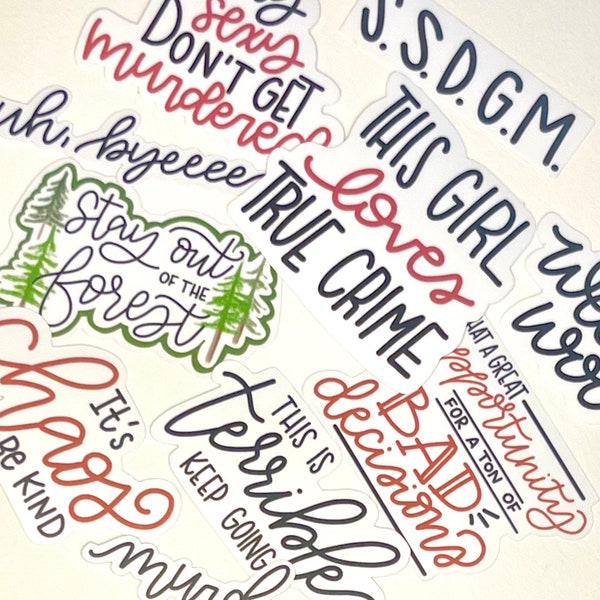 sexy
DON'T GET
murdered
S.S.D.G.M.
uh, byeeee
THIS GIRL
loves
TRUE CRIME
stay out
OF THE
forest
A GREAT
opportunity
FOR A TON OF
BAD
decisions
It's
chaos
BE KIND
THIS IS
terrible
KEEP GOING